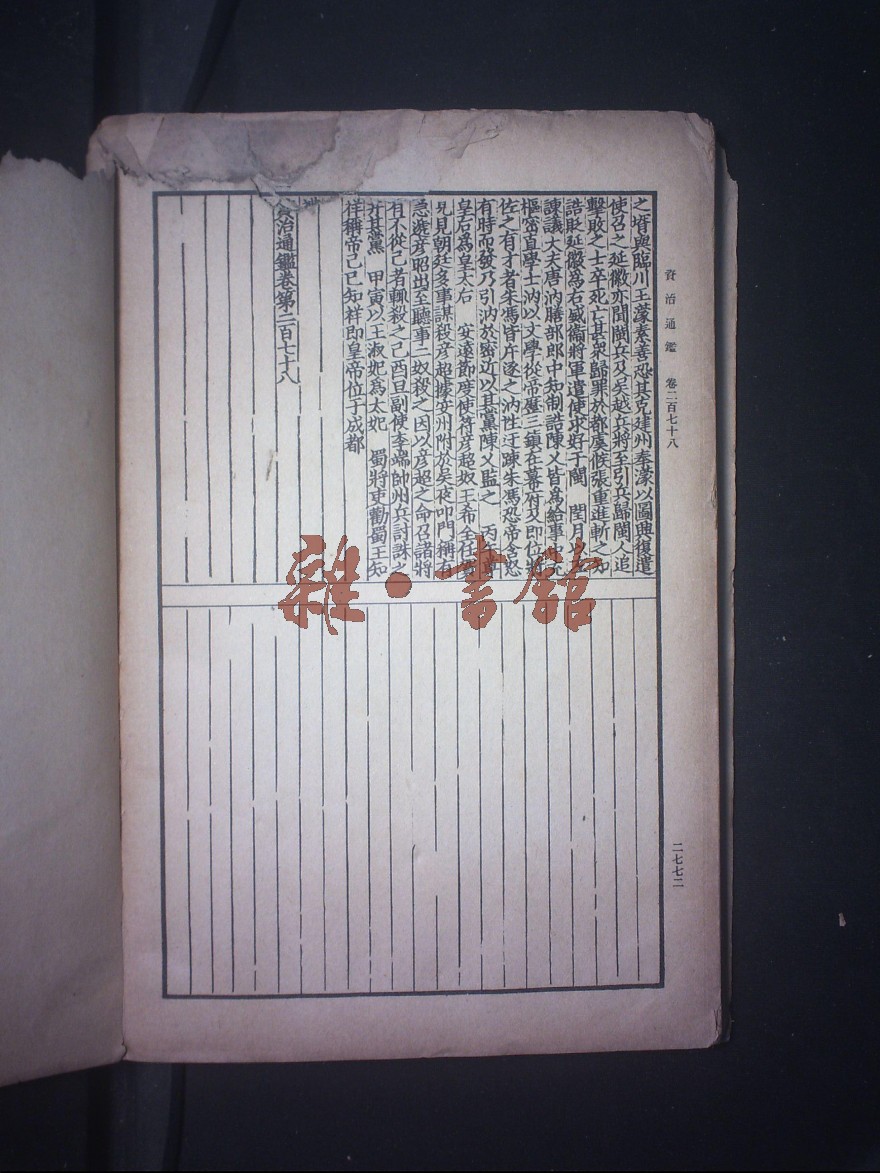 資治通鑑 卷二百七十八
之壻與臨川王濛素善恐其克建州奉濛以圖興復遣
使召之延徽亦聞閩兵及吳越兵將至引兵歸閩人追
擊敗之士卒死亡甚衆歸罪於都虞候張重進斬之知
誥貶延徽為右威衞將軍遣使求好于閩 閏月
諫議大夫唐汭膳部郎中知制誥陳乂皆為給事中充
樞密直學士汭以文學從帝歷三鎮在幕府及即位將
佐之有才者朱馮皆斥逐之汭性迂疎朱馮恐帝含怒
有時而發乃引汭於密近以其黨陳乂監之 丙午尊
皇后為皇太后 安遠節度使符彥超奴王希全任賀
兒見朝廷多事謀殺彥超據安州附於吳夜叩門稱有
急遞彥超出至聽事二奴殺之因以彥超之命召諸將
有不從己者輒殺之己酉旦副使李端帥州兵討誅之
并其黨 甲寅以王淑妃為太妃 蜀將吏勸蜀王知
祥稱帝己巳知祥即皇帝位于成都
資治通鑑卷第二百七十八
二七七二
雜·書館